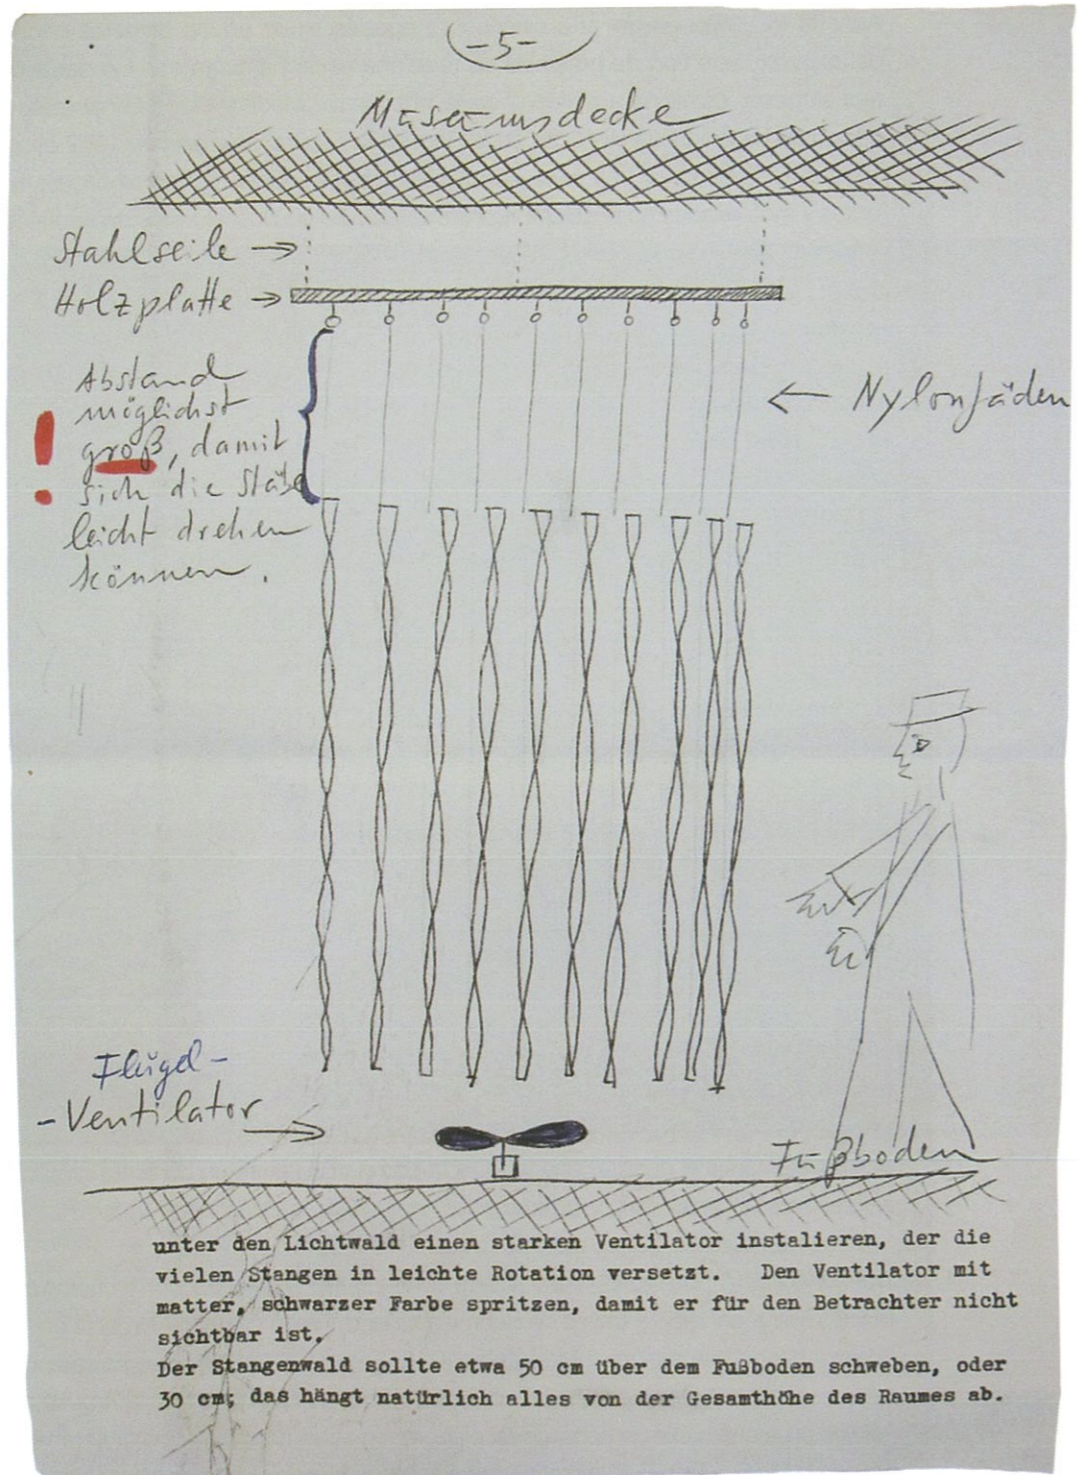 -5-
Museumsdecke
Stahlseile →
Holzplatte →
Abstand
möglichst
groß, damit
sich die Stäbe
leicht drehen
können.
!
← Nylonfäden
Flügel-
-Ventilator →
Fußboden
unter den Lichtwald einen starken Ventilator instalieren, der die
vielen Stangen in leichte Rotation versetzt. Den Ventilator mit
matter, schwarzer Farbe spritzen, damit er für den Betrachter nicht
sichtbar ist.
Der Stangenwald sollte etwa 50 cm über dem Fußboden schweben, oder
30 cm; das hängt natürlich alles von der Gesamthöhe des Raumes ab.